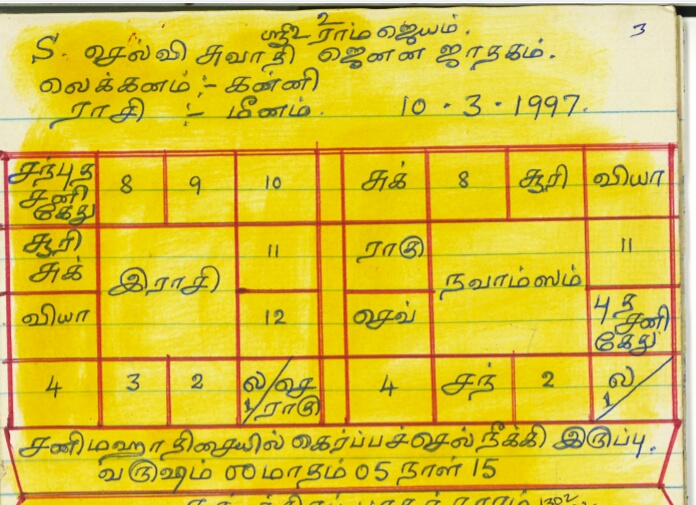 2
ஸ்ரீ ராம ஜெயம். 3
S. ஷெல்வி சுவாதி ஜெனன ஜாதகம்.
லெக்கனம் :- கன்னி
ராசி :- மீனம். 10.3.1997.
சந் புத 8 9 10 சுக் 8 சூரி வியா
சனி
கேது
சூரி 11 ராகு 11
சுக்
இராசி நவாம்ஸம்
வியா 12 செவ் புத
சனி
கேது
4 3 2 ல/செ 4 சந் 2 ல/
1 ராகு 1
சனி மஹா திசையில் கெர்ப்பச்செல் நீக்கி இருப்பு.
வருஷம் 00 மாதம் 05 நாள் 15